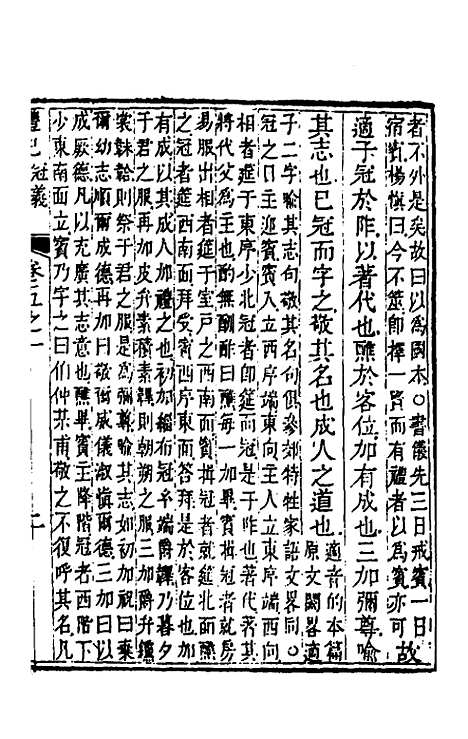 者不外是矣故曰以爲國本○書儀先三日戒賓一日
宿賓楊愼曰今不筮卽擇一賢而有禮者以爲賓亦可故
適子冠於阼以著代也醮於客位加有成也三加彌尊喻
其志也已冠而字之敬其名也成人之道也適音的本篇
原文闕畧適
子二字喻其志句敬其名句俱參郊特牲家語文畧同○
冠之日主迎賓賓入立西序端東向主人立東序端西向
相者筵于東序少北冠者卽筵而冠是于阼也著代著其
將代父爲主也酌無酬酢曰醮每一加畢賓揖冠者就房
易服出相者筵于室戸之西南面賓揖冠者就筵北面醮
之冠者筵西南面拜受賓西序東面荅拜是於客位也
以其有成人加禮之也初加緇布冠𤣥端爵韠乃暮夕
于君之服再加皮弁素積素韠則朝朔之服三加爵弁纁
裳韎韐則祭于君之服是爲彌尊喻其志如初加祝曰棄
爾幼志順爾成德再加曰敬爾威儀淑愼爾德三加曰以
成厥德凡以充廣其志意也醮畢賓主降階冠者西階下
少東南面立賓乃字之曰伯仲某甫敬之不復呼其名凡
禮記 冠義 卷三五之一 二